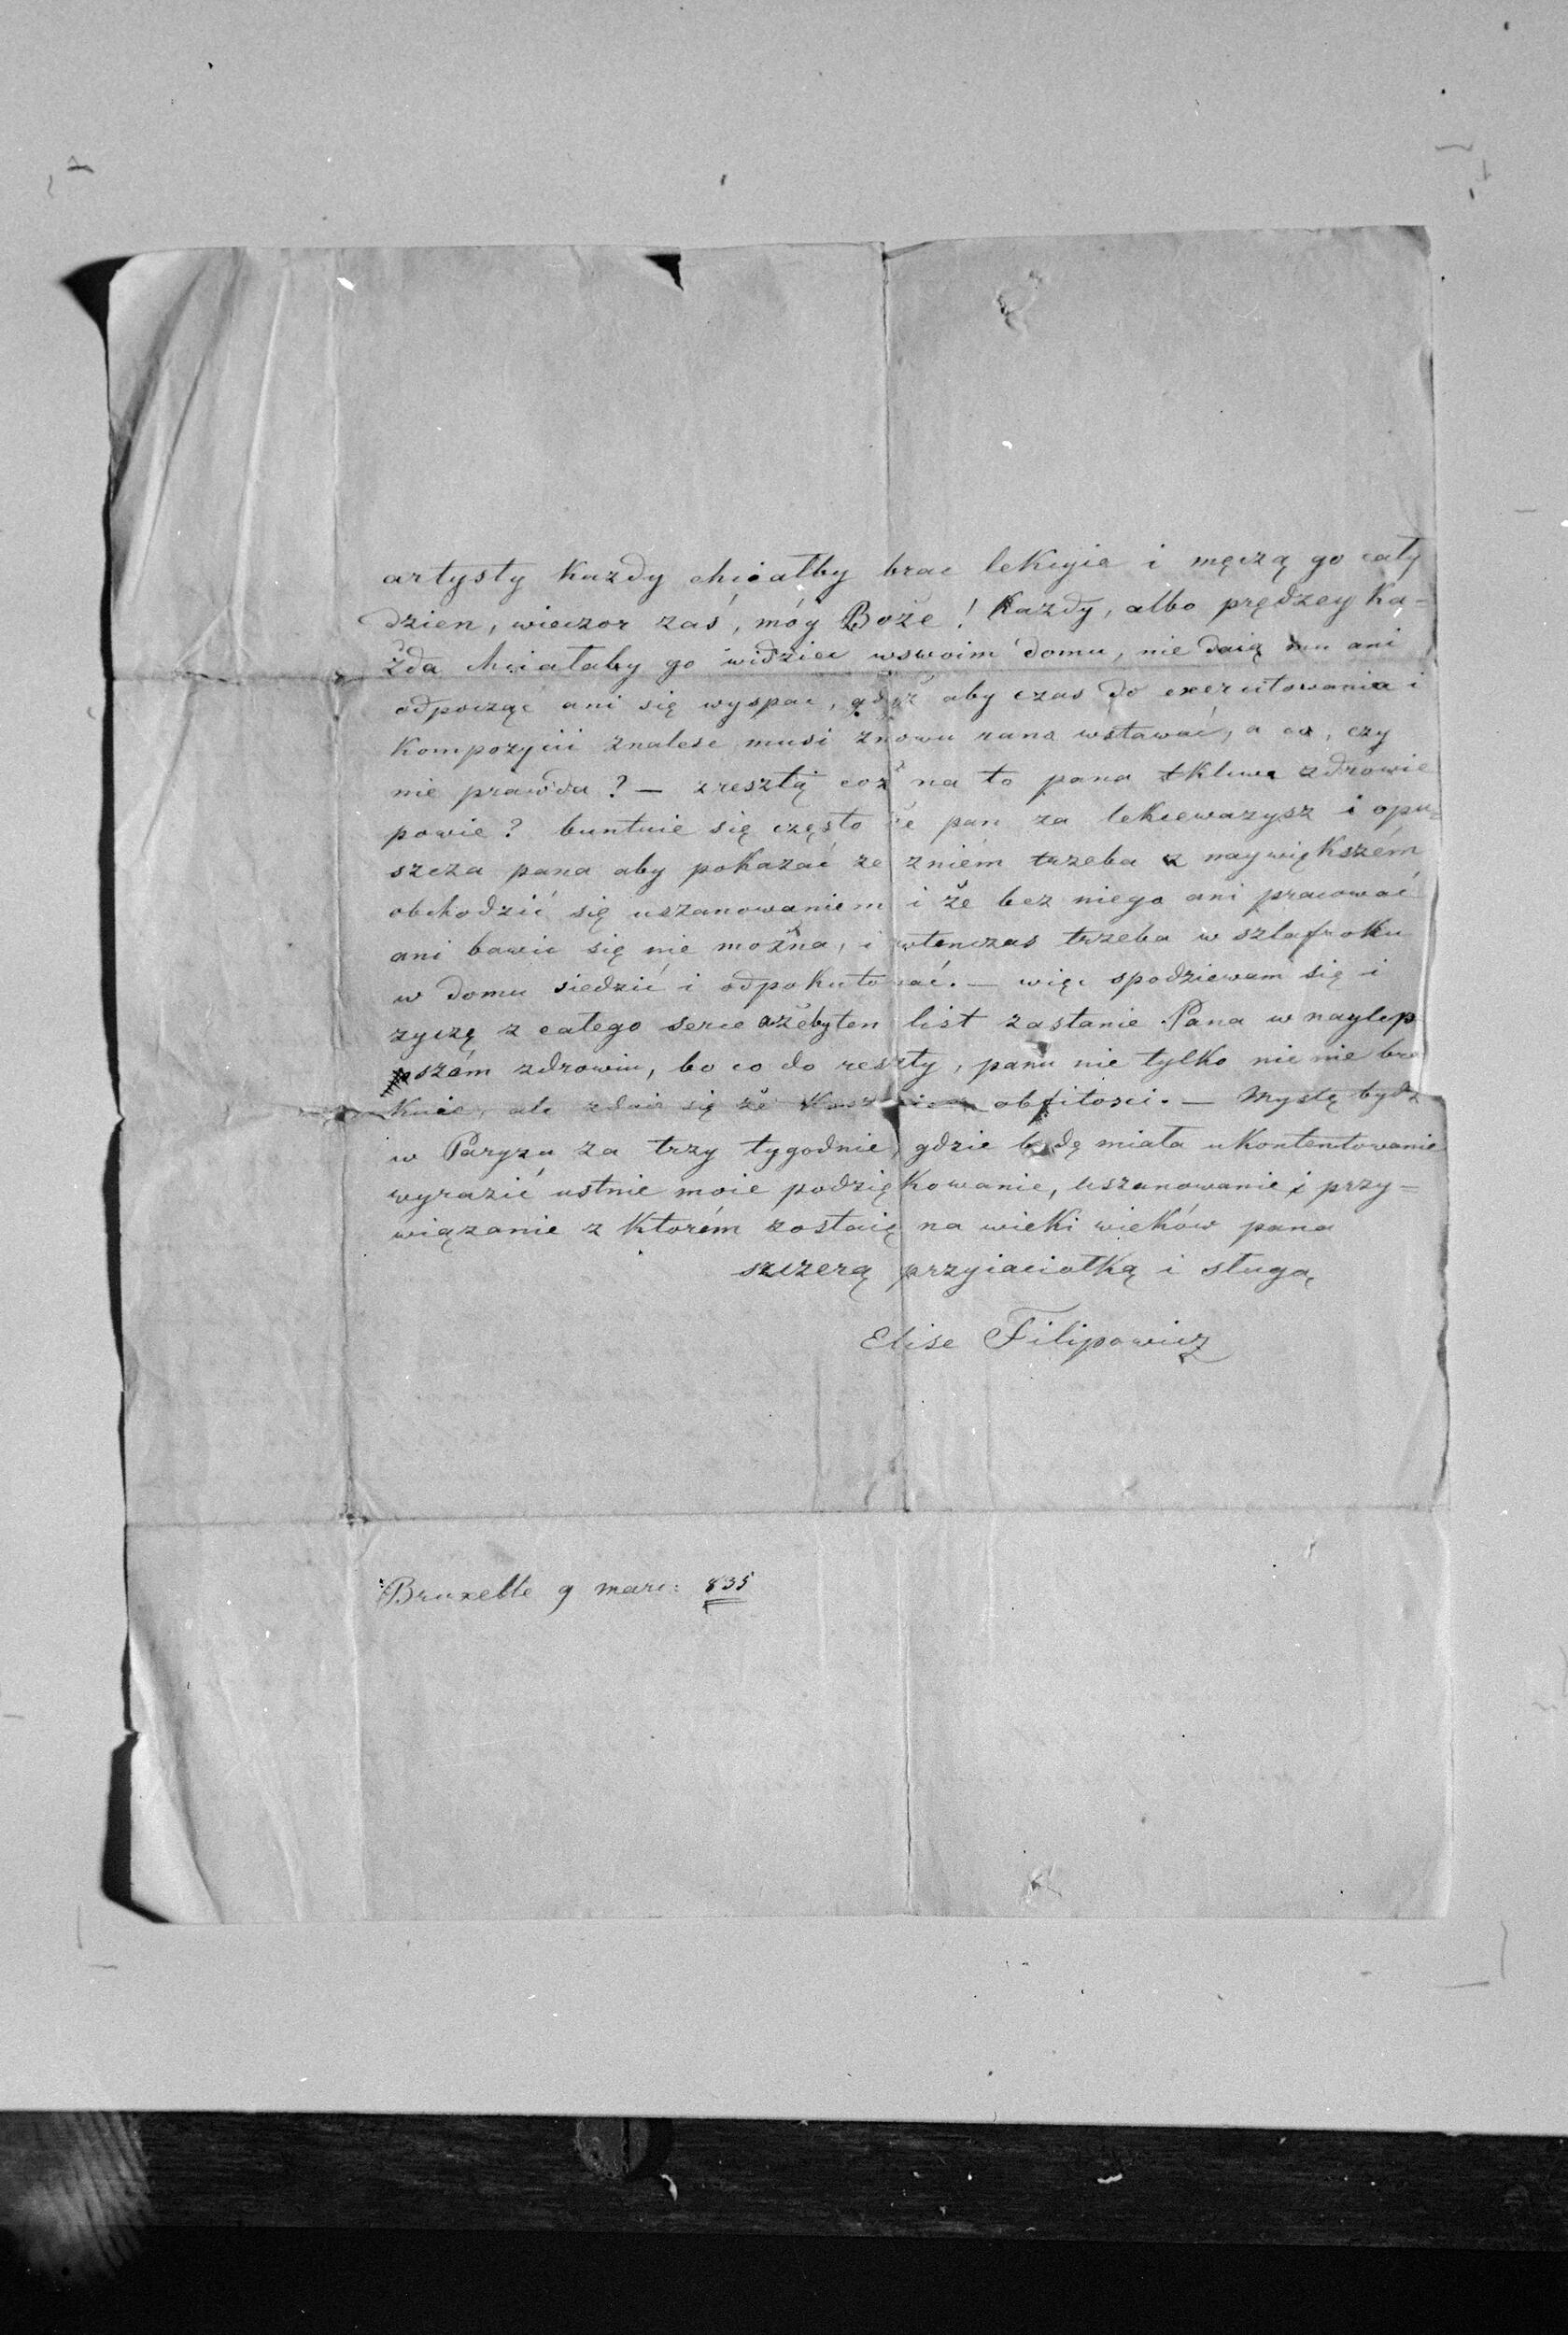 artysty każdy chciałby brac lekcyie i męczą go cały
dzien, wieczor zaś, móy Boże! Każdy, albo prędzey ka=
żda chciałaby go widziec wswoim domu, nie daią mu ani
odpocząc ani się wyspac, gdyż aby czas do exercitowania i
kompozycii znalesc musi znowu rano wstawać, a co, czy
nie prawda? — zresztą coż na to pana tkliwe zdrowie
powie? buntuie się często że pan za lekcewazysz i opu=
szcza pana aby pokazać ze zniém trzeba z naywiększém
obchodzić się uszanowaniem i że bez niego ani pracować
ani bawic się nie można, i wtenczas trzeba w szlafroku
w domu siedzić i odpokutować. — więc spodziewam się i
zyczę z całego serce ażebyten list zastanie Pana w naylep
szém zdrowiu, bo co do reszty, panu nie tylko nic nie bra
knie, ale zdaie się że obfitosci. — Myslę bydz
w Paryzu za trzy tygodnie, gdzie będę miała ukontentowanie
wyrazić ustnie moie podziękowanie, uszanowanie i przy=
wiązanie z ktorém zostaię na wieki wieków pana
szczerą przyiaciołką i sługą
Elise Filipowicz
Bruxelle 9 marc: 835